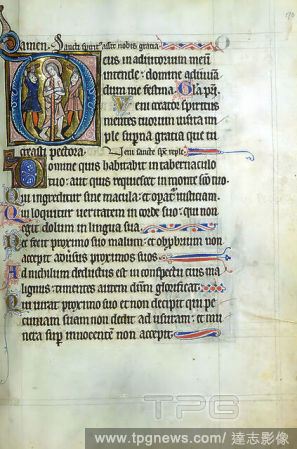 170
amen. Sancti spiritus assit nobis gratia
eus in adiutorium meum
intende : domine ad iuuan
dum me festina. Gła pří.
Veni creator spiritus
mentes tuorum uisita im
ple supna gratia que tu
creasti pectora. Veni sancte spc reple.
Domine quis habitabit in tabernaculo
tuo : aut quis requiescet in monte sco tuo
Qui ingreditur sine macula : et opať iusticiam.
Qui loquitur ueritatem in corde suo : qui non
egit dolum in lingua sua.
Nec fecit proximo suo malum : et obpbrium non
accepit aduersus proximos suos.
Ad nichilum deductus est in conspectu eius ma
lignus : timentes autem dnm glorificat.
Qui iurat proximo suo et non decipit qui pe
cuniam suam non dedit ad usuram : et mu
nera sup innocentem non accepit.
TPG
www.tpgnews.com/ 達志影像